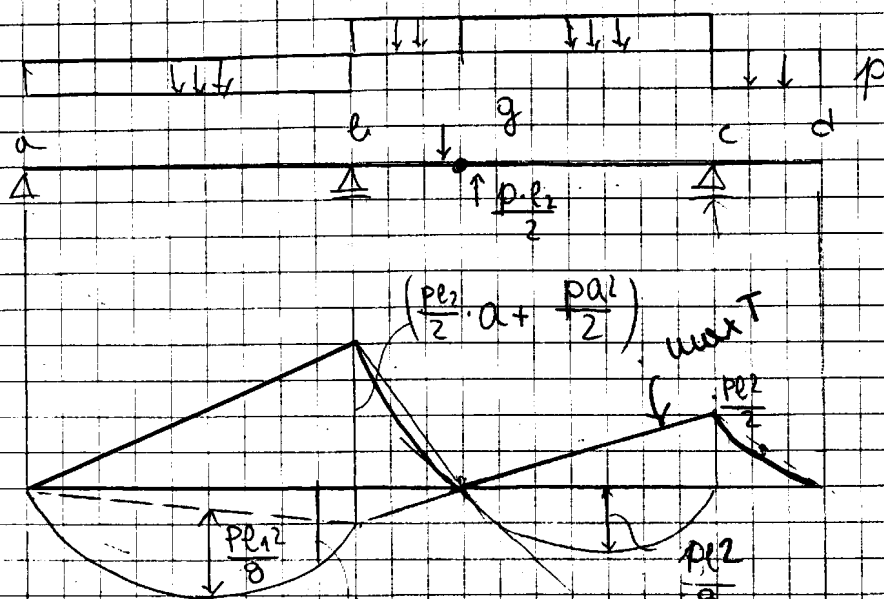 p
a b g c d
p·l₂/2
(pl₂/2 · a + pa²/2)
max T
pl²/2
pl₁²/8
pl²/8